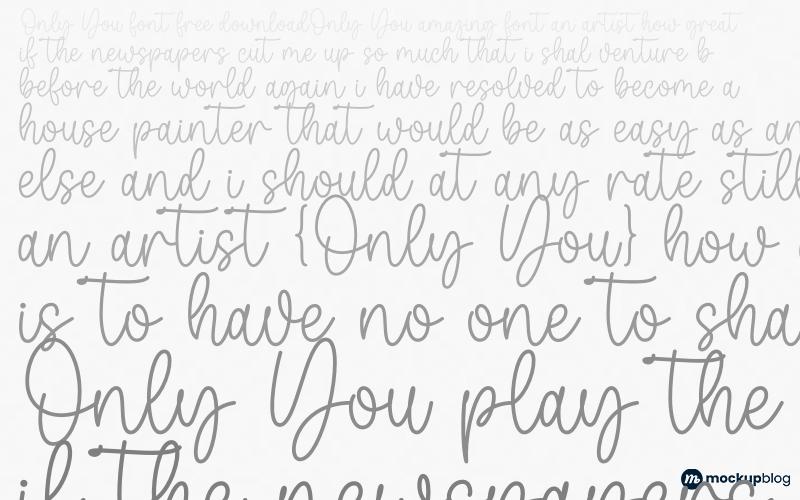 Only You font free downloadOnly You amazing font an artist how great
if the newspapers cut me up so much that i shal venture b
before the world again i have resolved to become a
house painter that would be as easy as an
else and i should at any rate still
an artist {Only You} how
is to have no one to sha
Only You play the
if the newspapers
mockupblog